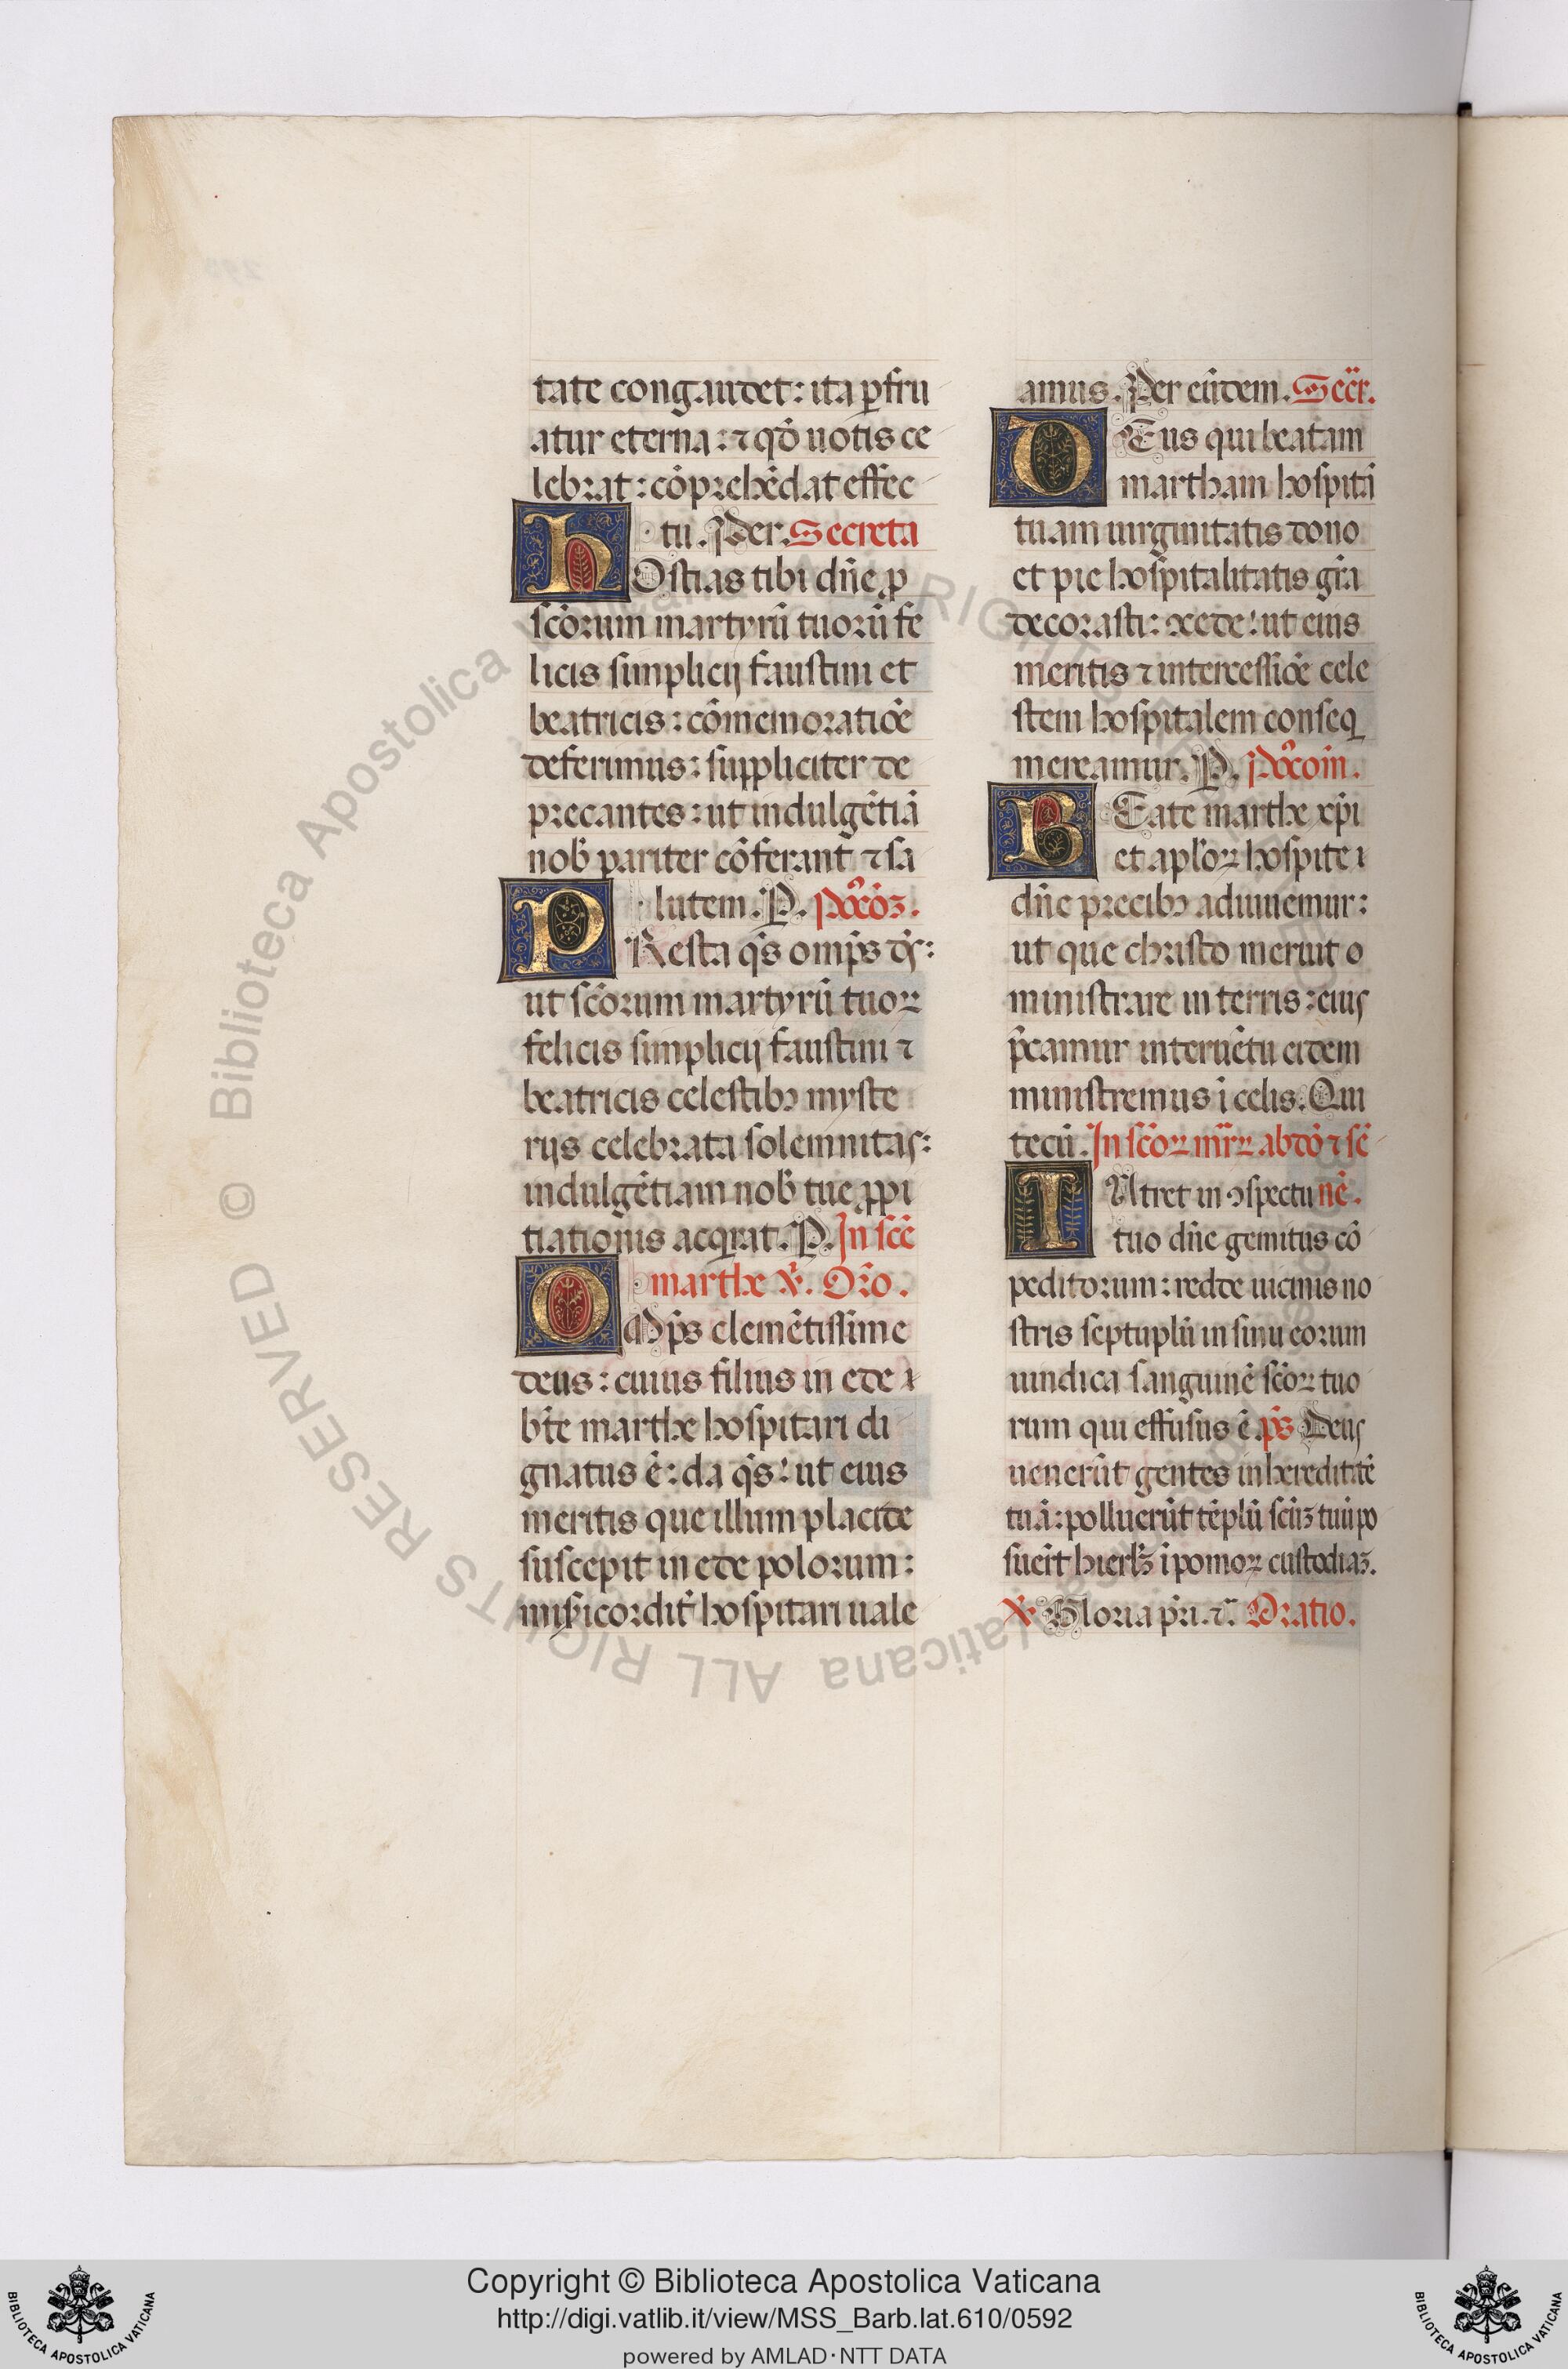 tate congaudet: ita ꝑfru
atur eterna: ⁊ qd̄ uotis ce
lebrat: cōprehēdat effec
tu. Per. Secreta
HOstias tibi dn̄e p
scōrum martyrū tuorū fe
licis simplicij faustini et
beatricis: cōmemoratiōe
deferimus: suppliciter de
precantes: ut indulgētiā
nob̄ pariter cōferant ⁊ sa
lutem. P.
PResta qs̄ omp̄s ds̄:
ut scōrum martyrū tuoꝝ
felicis simplicij faustini ⁊
beatricis celestibꝫ myste
rijs celebrata solemnitas:
indulgētiam nob̄ tue ꝓpi
tiationis acqͥrat. P. In scē
marthe v̄. Orō.
OMp̄s clemētissime
deus: cuius filius in ede i
bt̄e marthe hospitari di
gnatus ē: da qs̄: ut eius
meritis que illum placide
suscepit in ede polorum:
mis̄icordit̄ hospitari uale
amus. Per eūdem. Secr̄.
DEus qui beatam
martham hospitā
tuam uirginitatis dono
et pie hospitalitatis grā
decorasti: ꝯcede: ut eius
meritis ⁊ intercessiōe cele
stem hospitalem conseq
mereamur. P. Poꝯcōm.
BEate marthe xp̄i
et apl̄oꝝ hospite i
dn̄e precibꝫ adiuuemur:
ut que christo meruit o
ministrare in terris: eius
p̄camur interuētu eidem
ministremus i celis. Qui
tecū. In scōꝝ mr̄ꝝ abdō ⁊ sē
INtret in ꝯspectu nē.
tuo dn̄e gemitus cō
peditorum: redde uicinis no
stris septuplū in sinu eorum
uindica sanguinē scōꝝ tuo
rum qui effusus ē. ps̄ Deus
uenerūt gentes in hereditatē
tuā: polluerūt tēplū scūꝫ tuū po
suert̄ hierlꝫ i pomoꝝ custodiaꝫ.
V̄. Gloria pr̄i. ⁊c̄. Oratio.
© Biblioteca Apostolica Vaticana ALL RIGHTS RESERVED
Copyright © Biblioteca Apostolica Vaticana
http://digi.vatlib.it/view/MSS_Barb.lat.610/0592
powered by AMLAD·NTT DATA
BIBLIOTECA APOSTOLICA VATICANA
BIBLIOTECA APOSTOLICA VATICANA